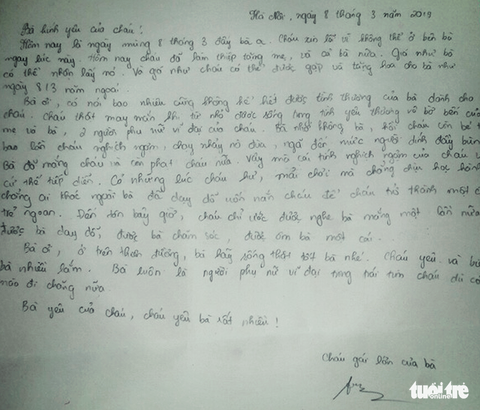 Hà Nội, ngày 8 tháng 3 năm 2019
Bà kính yêu của cháu!
Hôm nay là ngày mùng 8 tháng 3 đấy bà ạ. Cháu xin lỗi vì không thể ở bên bà
ngay lúc này. Hôm nay cháu đã làm thiệp tặng mẹ, và cả bà nữa. Giá như bà
có thể nhận lấy nó. Và giá như cháu có thể được gặp và tặng hoa cho bà như
ngày 8/3 năm ngoái.
Bà ơi, có nói bao nhiêu cũng không kể hết được tình thương của bà dành cho
cháu. Cháu thật may mắn khi từ nhỏ được sống trong tình yêu thương vô bờ bến của
mẹ và bà, 2 người phụ nữ vĩ đại của cháu. Bà nhớ không bà, hồi cháu còn bé
bao lần cháu nghịch ngợm, chạy nhảy nô đùa, ngã đến mức người dính đầy bùn
Bà đã mắng cháu và còn phạt cháu nữa. Vậy mà cái tính nghịch ngợm của cháu
cứ thế tiếp diễn. Có những lúc cháu hư, mải chơi mà chẳng chịu học hành
chẳng ai khác ngoài bà đã dạy dỗ uốn nắn cháu để cháu trở thành một
trò ngoan. Đến tận bây giờ, cháu chỉ ước được nghe bà mắng một lần nữa
được bà dạy dỗ, được bà chăm sóc, được ôm bà một cái.
Bà ơi, ở trên thiên đường, bà hãy sống thật tốt bà nhé. Cháu yêu và
bà nhiều lắm. Bà luôn là người phụ nữ vĩ đại trong trái tim cháu dù có
nào đi chăng nữa.
Bà yêu của cháu, cháu yêu bà rất nhiều!
Cháu gái lớn của bà
tuổi trẻ
online